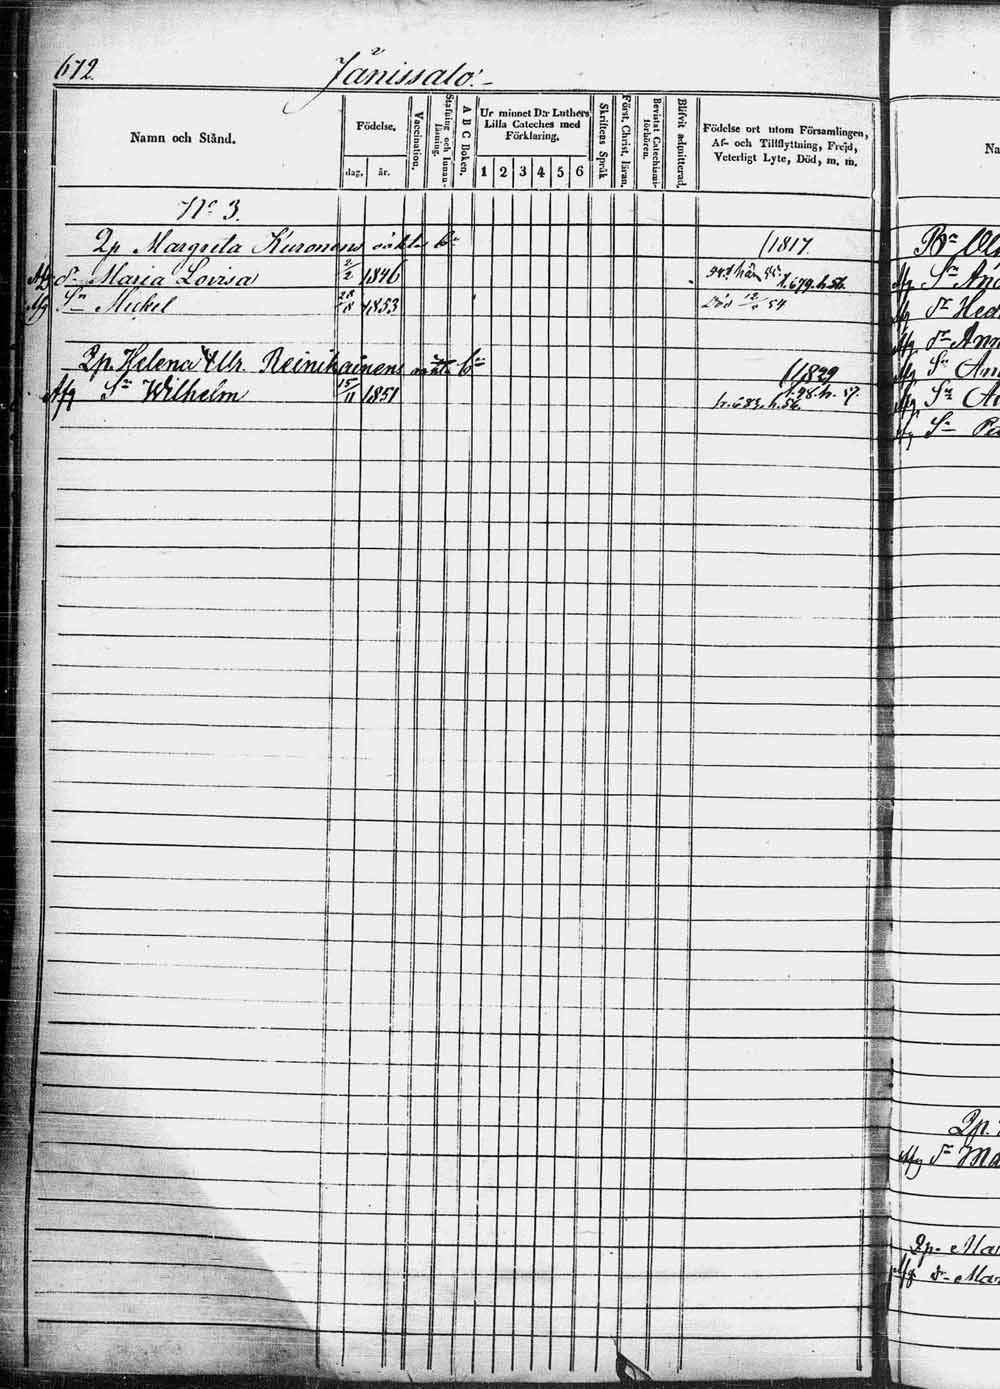 672.
Jänissalo.
Namn och Stånd.
Födelse.
dag. år.
Vaccination.
Stafning och Innan-läsning.
A B C Boken.
Ur minnet D:r Luthers
Lilla Cateches med
Förklaring.
1 2 3 4 5 6
Skriftens Språk
Först. Christ. läran.
Bevistat Catechismi-förhören.
Blifvit admitterad.
Födelse ort utom Församlingen,
Af- och Tillflyttning, Frejd,
Veterligt Lyte, Död, m. m.
Na
No 3.
Qp. Margreta Kuronens oäkta bn (1817.
Afg dr Maria Lovisa 2/2 1846 här 55. 1.679.h.56.
Afg Sn Mickel 28/8 1853 Död 12/ 54
Qp. Helena Ulr. Reinikainens oäkta bn (1829
Afg Sn Wilhelm 15/11 1851 1.98.h.57.
tr.683.h.56.
Afg Sn
Afg dr
Afg dr Ann
Afg Sn
Afg Sn
Afg Sn
Qp.
Afg dr Ma
Qp. Mar
Afg dr Mar